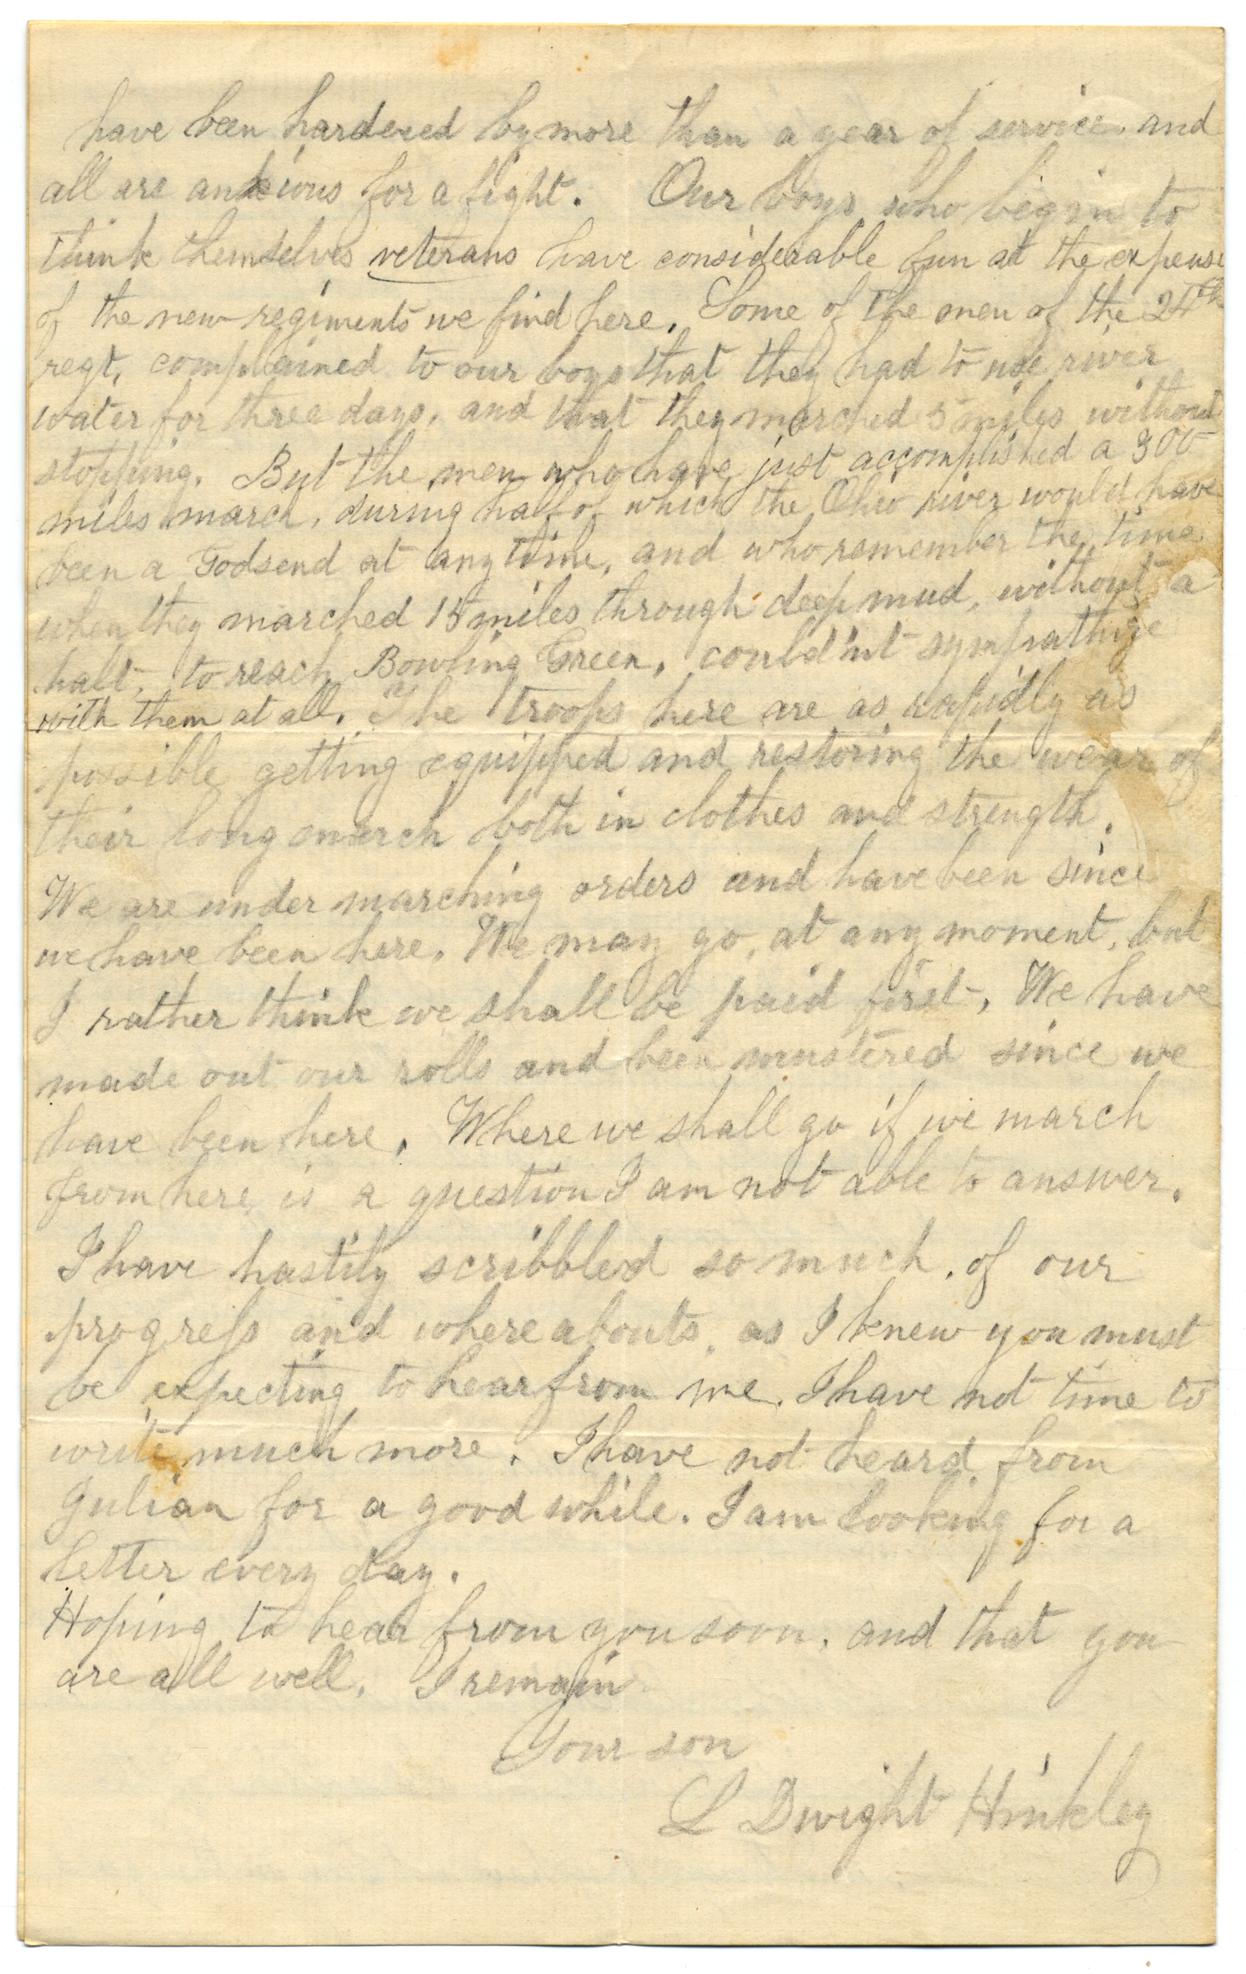 have been hardened by more than a year of service and
all are anxious for a fight. Our boys who begin to
think themselves veterans have considerable fun at the expense
of the new regiments we find here. Some of the men of the 24th
regt. complained to our boys that they had to use river
water for three days, and that they marched 5 miles without
stopping. But the men who have just accomplished a 300
miles march, during half of which the Ohio river would have
been a Godsend at any time, and who remember the time
when they marched 15 miles through deep mud, without a
halt, to reach Bowling Green, could'nt sympathize
with them at all. The troops here are as rapidly as
possible getting equipped and restoring the wear of
their long march both in clothes and strength.
We are under marching orders and have been since
we have been here. We may go, at any moment, but
I rather think we shall be paid first. We have
made out our rolls and been mustered since we
have been here. Where we shall go if we march
from here is a question I am not able to answer.
I have hastily scribbled so much of our
progress and whereabouts as I knew you must
be expecting to hear from me. I have not time to
write much more. I have not heard from
Julian for a good while. I am looking for a
letter every day.
Hoping to hear from you soon, and that you
are all well. I remain
Your son
L Dwight Hinkley